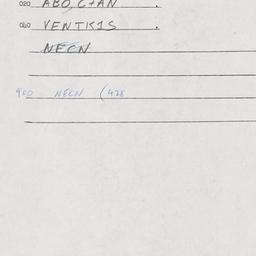 020 ABD, C+AN .
040 VENTRIS .
NECN
900 NECN (428